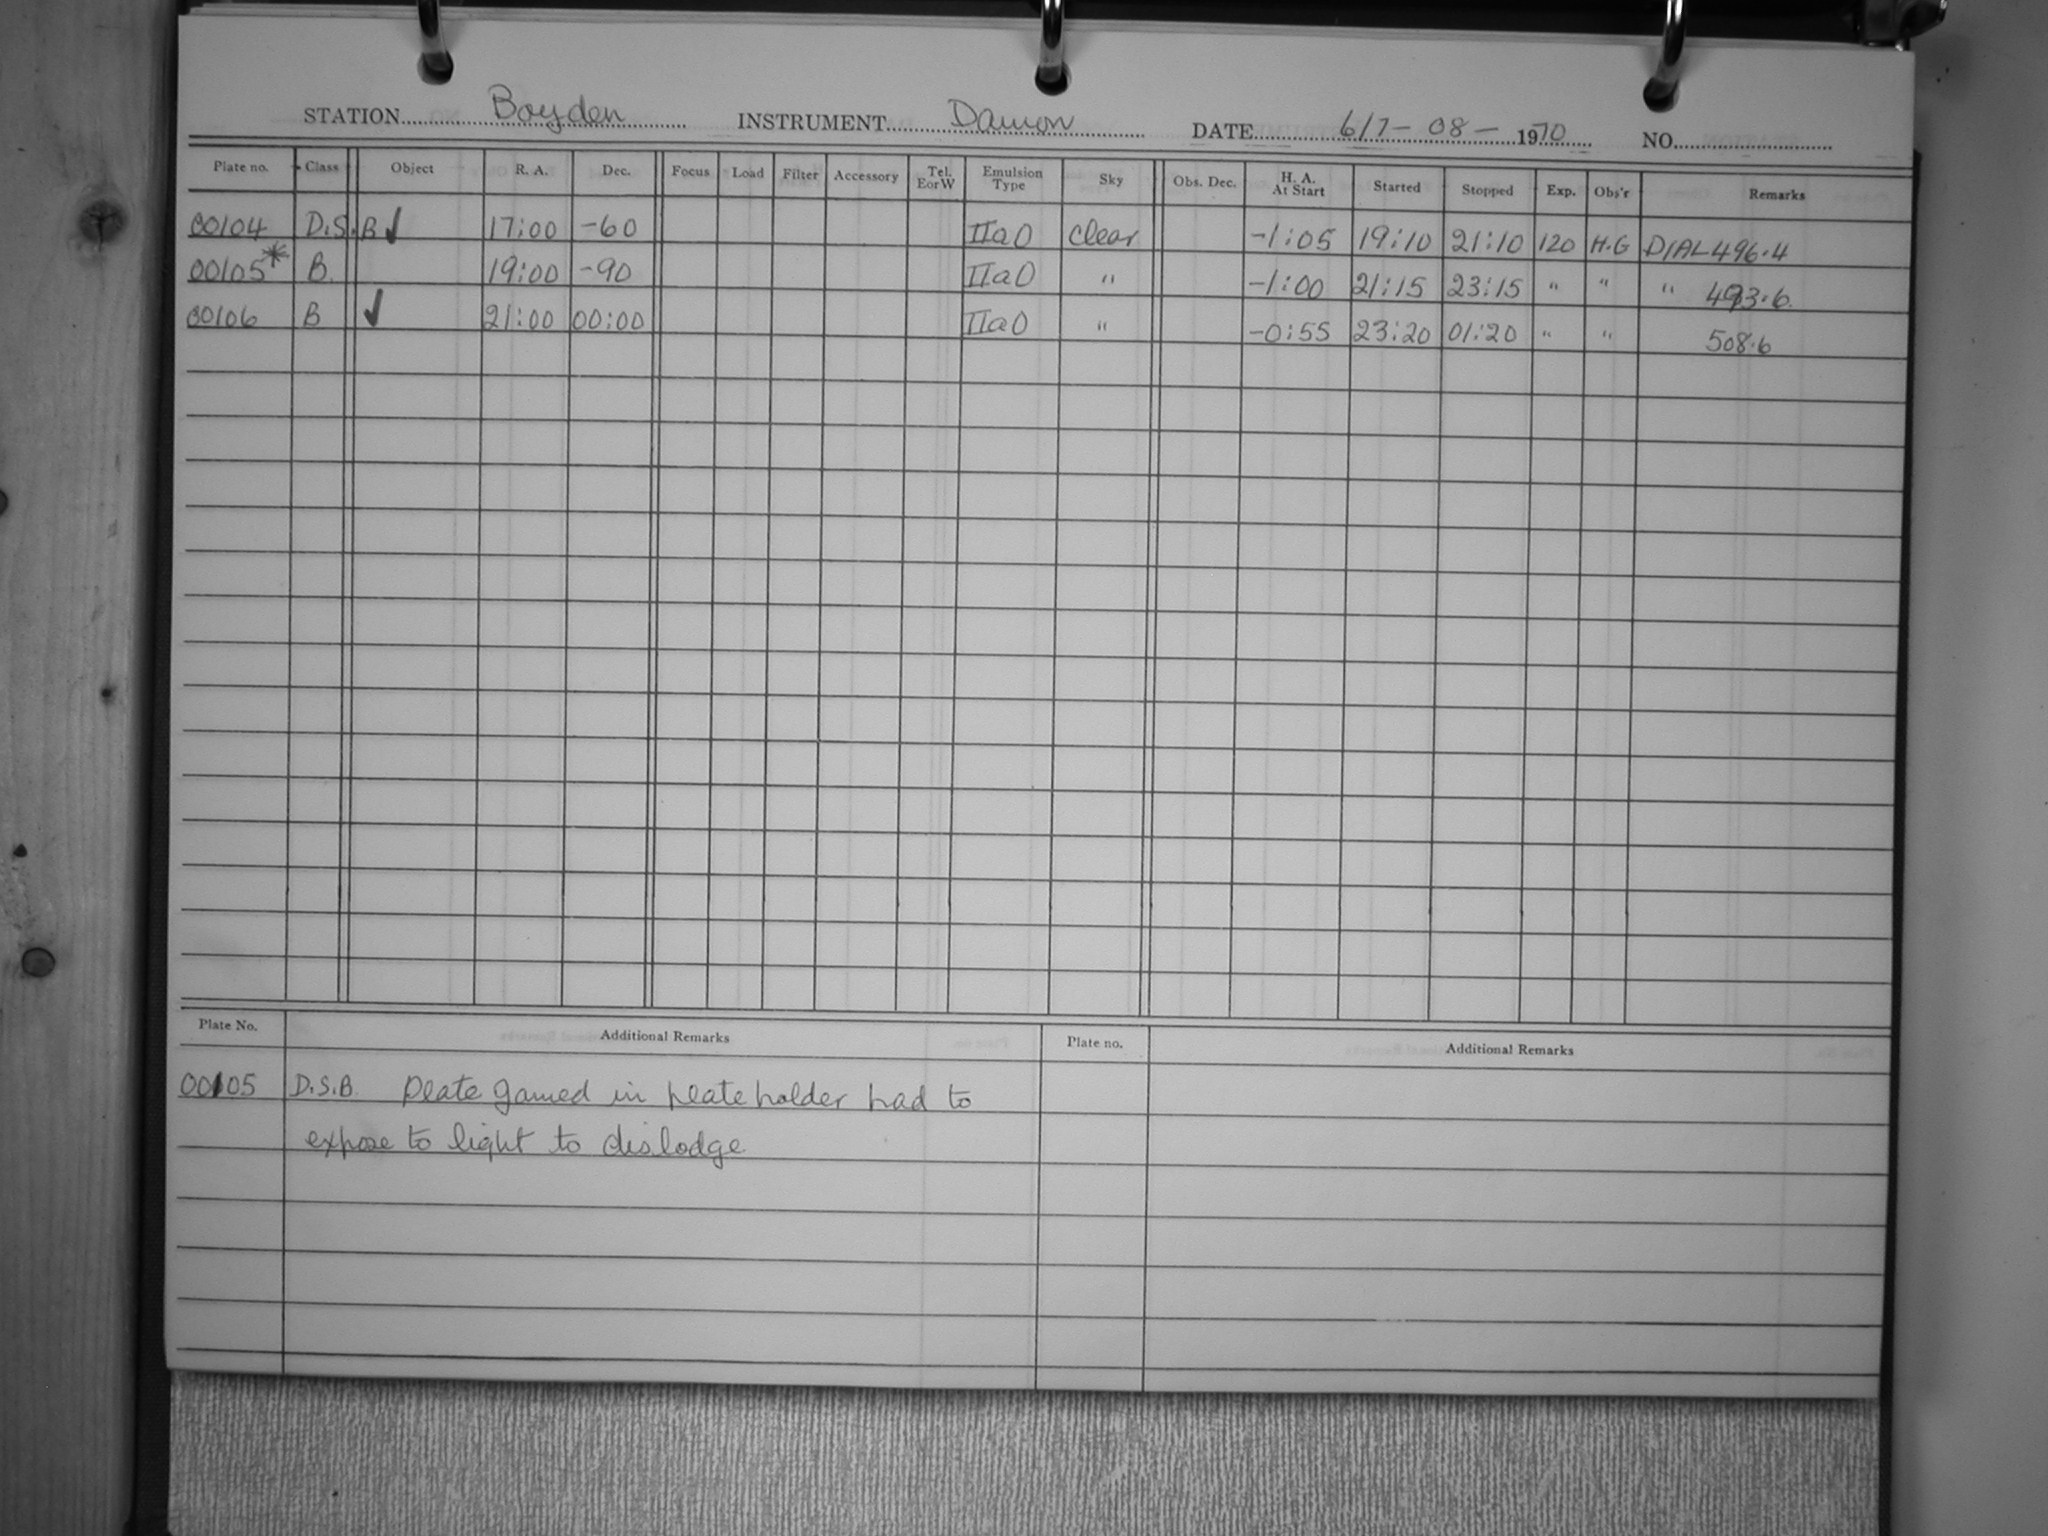 STATION Boyden INSTRUMENT Damon DATE 6/7-08-1970 NO.
Plate no. Class Object R. A. Dec. Focus Load Filter Accessory Tel. E or W Emulsion Type Sky Obs. Dec. H. A. At Start Started Stopped Exp. Obs'r Remarks
00104 D.S.B ✓ 17:00 -60 IIaO Clear -1:05 19:10 21:10 120 H.G DIAL 496.4
00105* B. 19:00 -90 IIaO " -1:00 21:15 23:15 " " " 493.6.
00106 B ✓ 21:00 00:00 IIaO " -0:55 23:20 01:20 " " 508.6
Plate No. Additional Remarks Plate no. Additional Remarks
00105 D.S.B. Plate gamed in plateholder had to
expose to light to dislodge